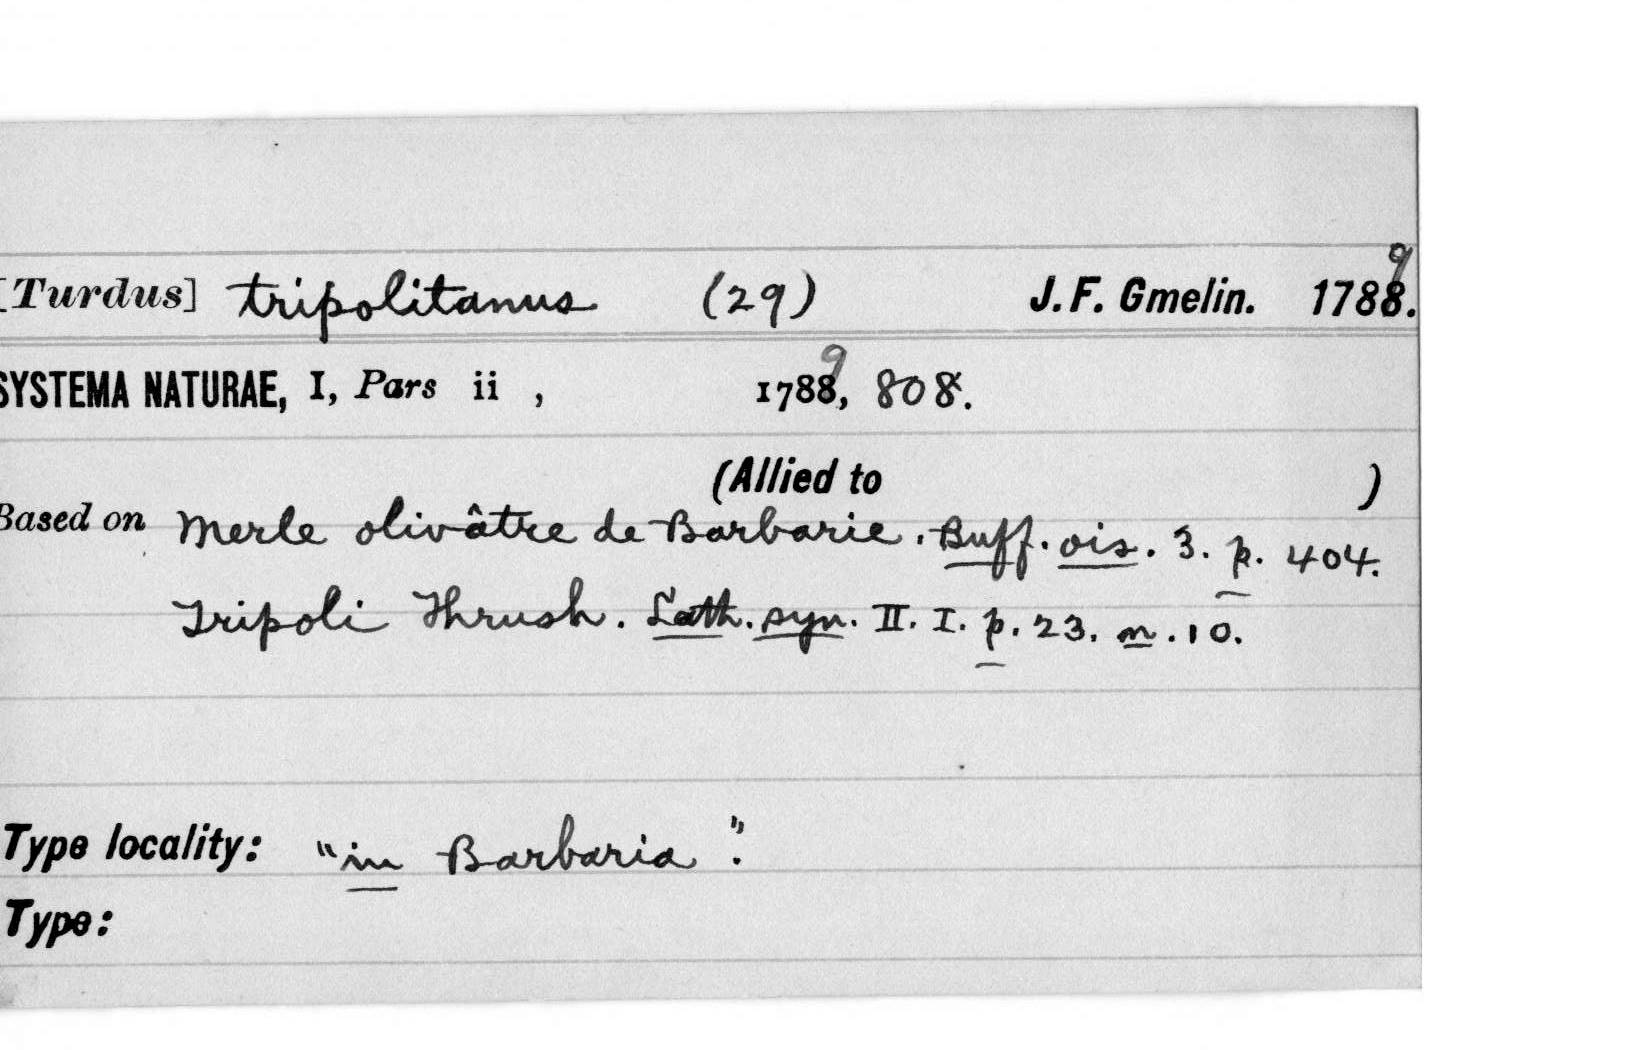 [Turdus] tripolitanus (29) J. F. Gmelin. 1788. 9
SYSTEMA NATURAE, I, Pars ii , 1788, 9 808.
(Allied to )
Based on Merle olivâtre de Barbarie. Buff. ois. 3. p. 404.
Tripoli Thrush. Lath. syn. II. I. p. 23. n. 10.
Type locality: "in Barbaria".
Type: